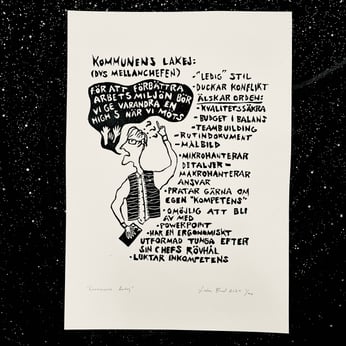 KOMMUNENS LAKEJ:
(DVS MELLANCHEFEN)
FÖR ATT FÖRBÄTTRA
ARBETSMILJÖN BÖR
VI GE VARANDRA EN
HIGH 5 NÄR VI MÖTS
??
- "LEDIG" STIL
- DUCKAR KONFLIKT
ÄLSKAR ORDEN:
- KVALITETSSÄKRA
- BUDGET I BALANS
- TEAMBUILDING
- RUTINDOKUMENT
- MÅLBILD
- MIKROHANTERAR
DETALJER -
MAKROHANTERAR
ANSVAR
- PRATAR GÄRNA OM
EGEN "KOMPETENS"
- OMÖJLIG ATT BLI
AV MED
- POWERPOINT
- HAR EN ERGONOMISKT
UTFORMAD TUNGA EFTER
SIN CHEFS RÖVHÅL
- LUKTAR INKOMPETENS